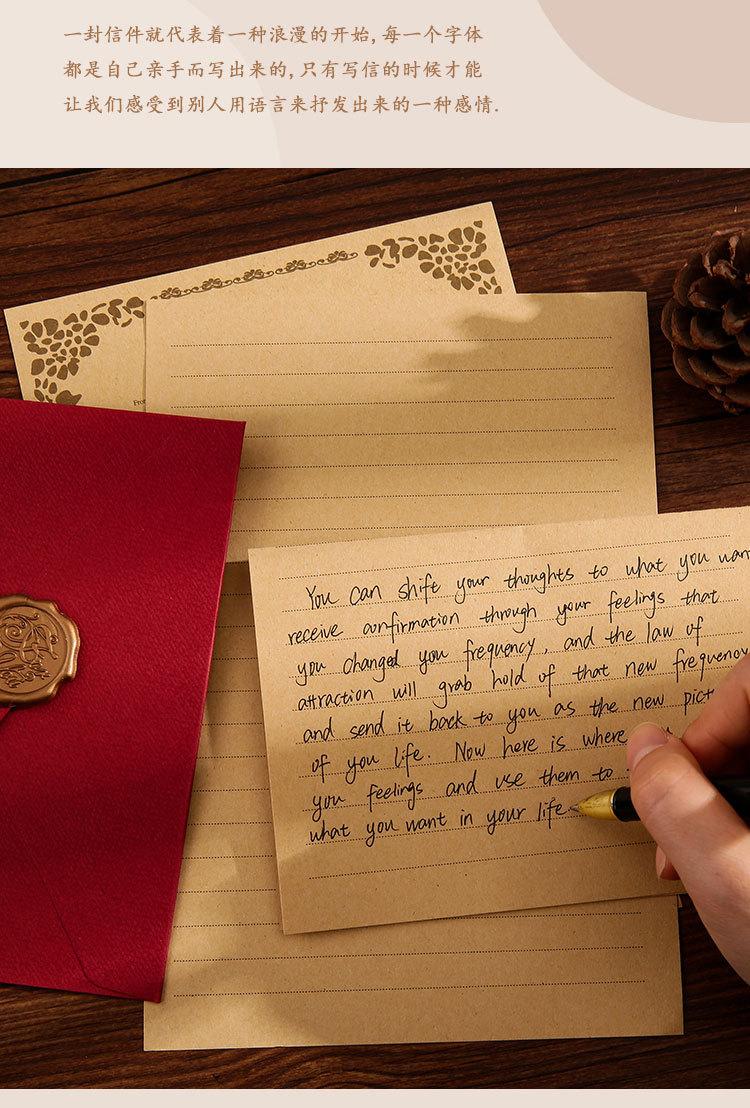 一封信件就代表着一种浪漫的开始,每一个字体
都是自己亲手而写出来的,只有写信的时候才能
让我们感受到别人用语言来抒发出来的一种感情.
You can shift your thoughts to what you want
receive confirmation through your feelings that
you changed you frequency, and the law of
attraction will grab hold of that new frequency
and send it back to you as the new
of you life. Now here is where
you feelings and use them to
what you want in your life